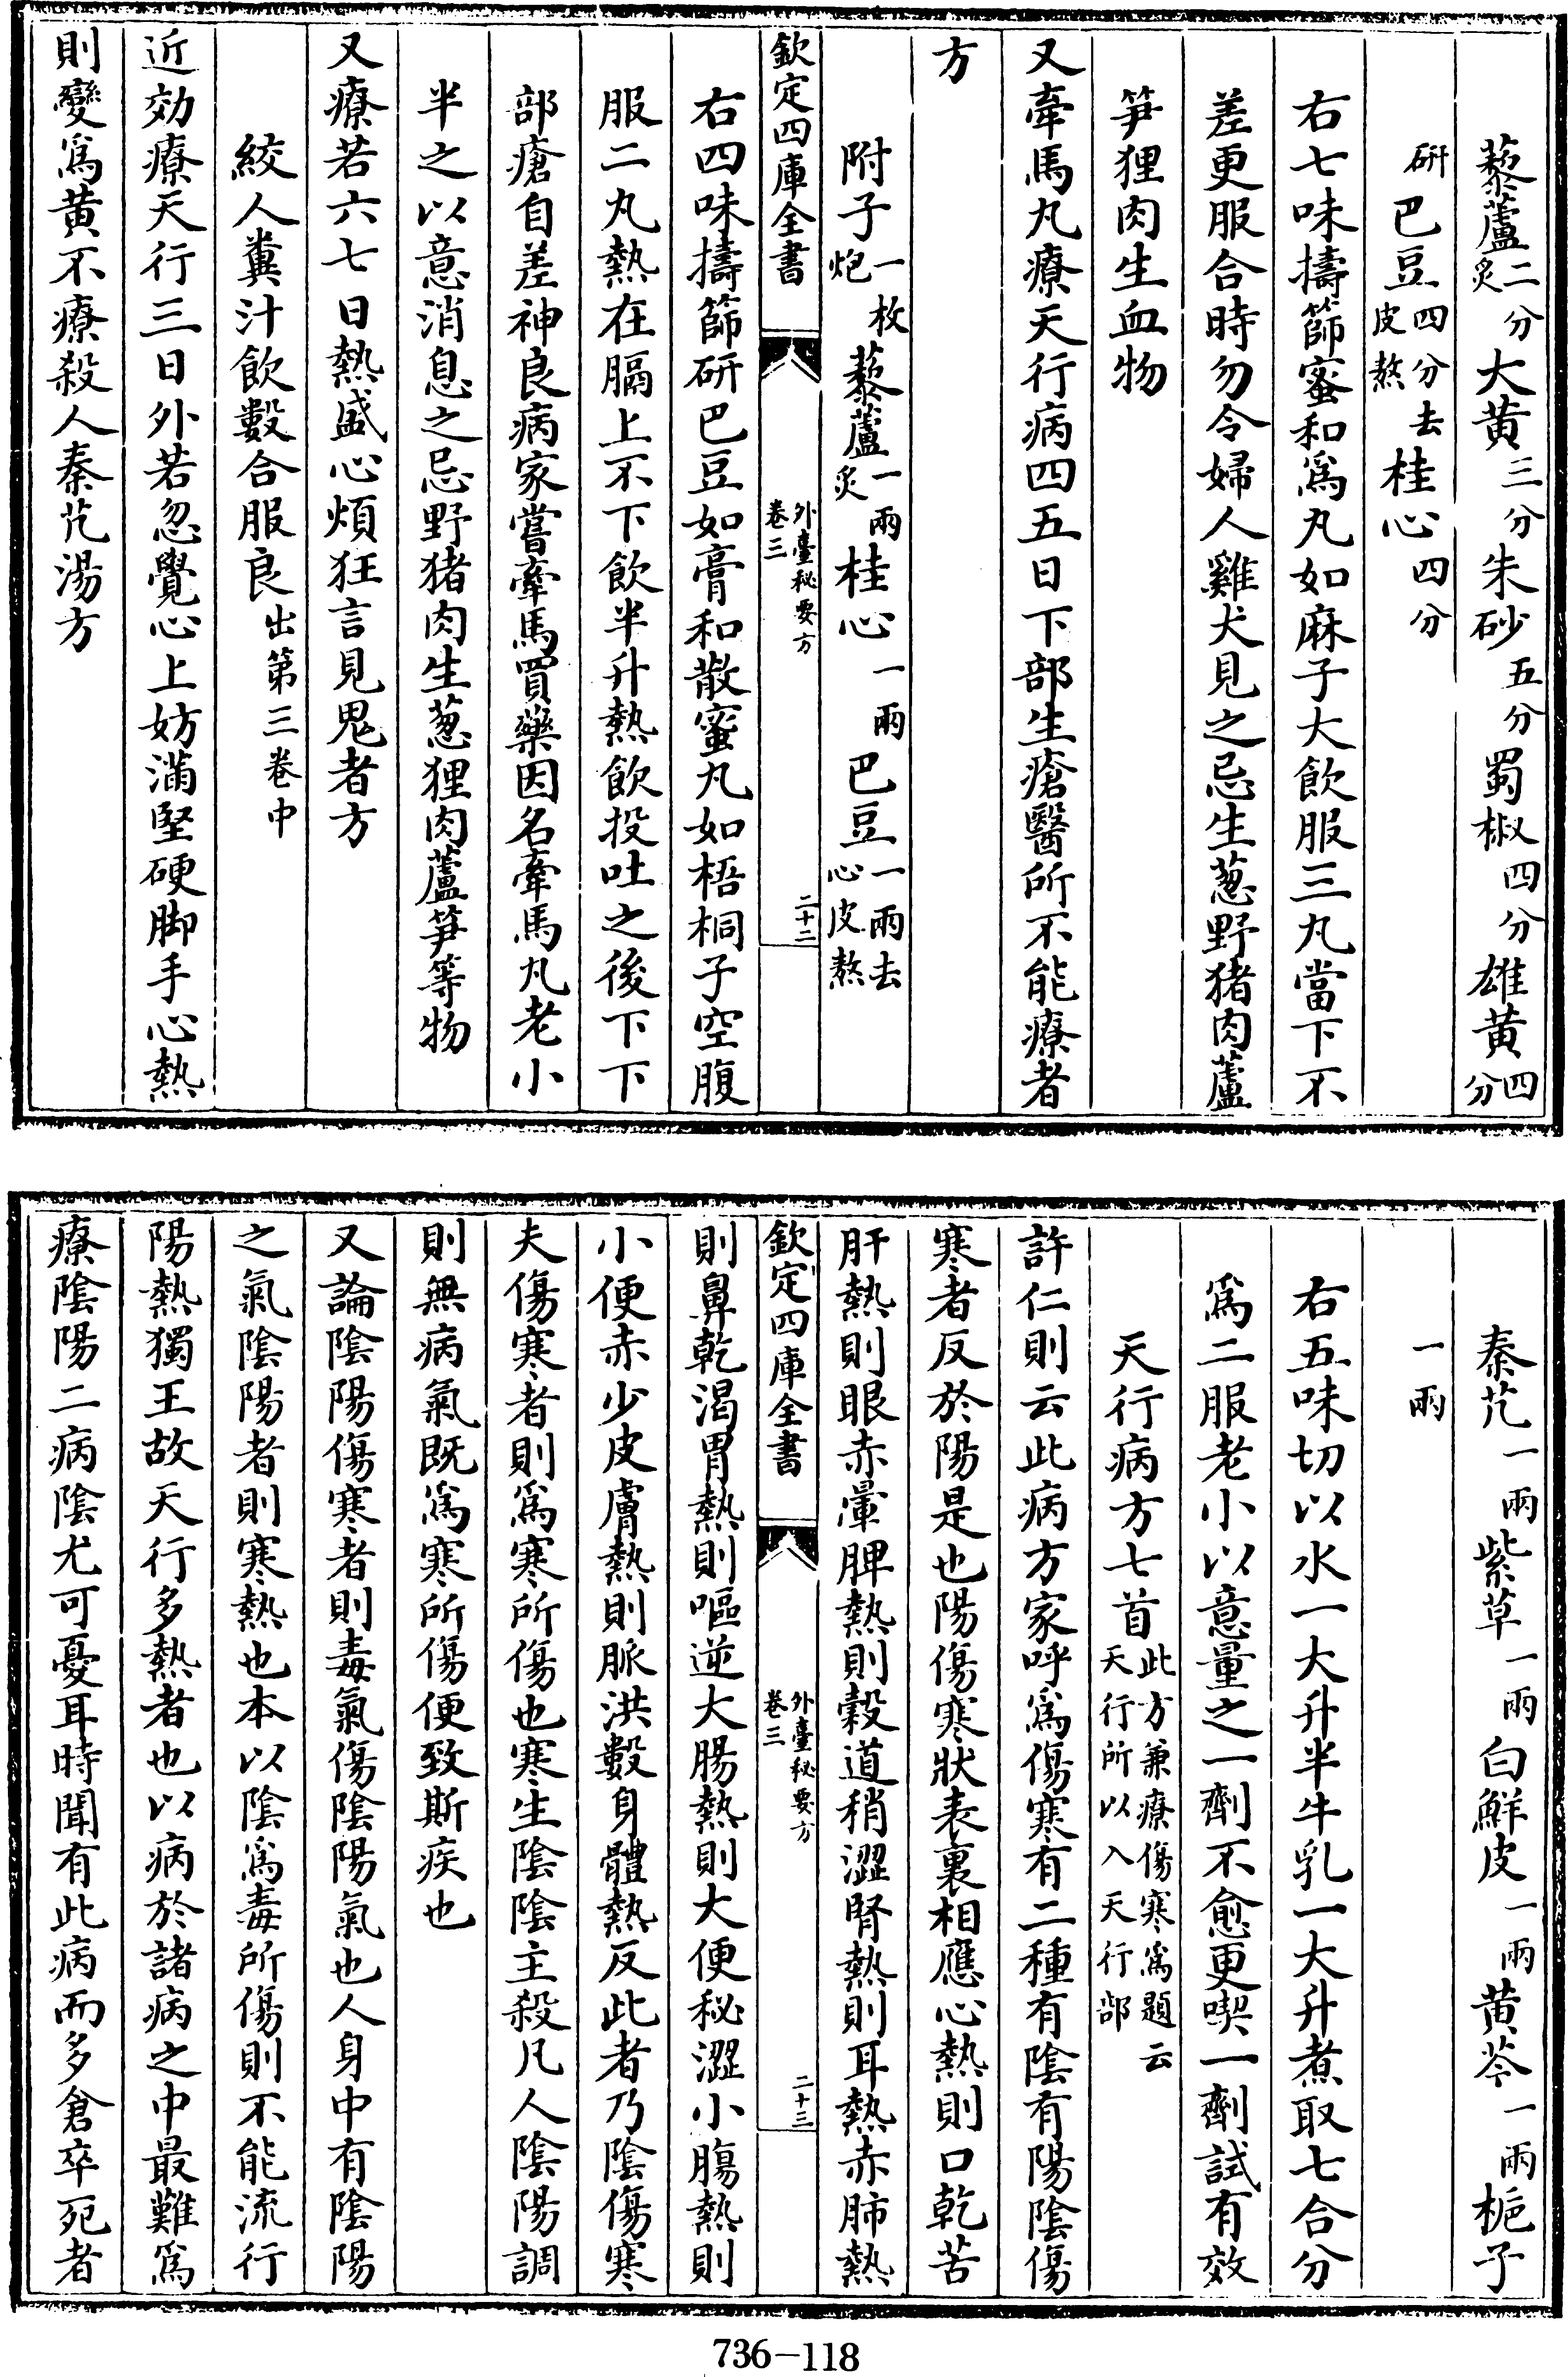 藜蘆二分炙大黄三分朱砂五分蜀椒四分雄黄四分
研巴豆四分去皮熬桂心四分
右七味擣篩蜜和為丸如麻子大飲服三丸當下不
差更服合時勿令婦人雞犬見之忌生葱野猪肉蘆
笋狸肉生血物
又牽馬丸療天行病四五日下部生瘡醫所不能療者
方
附子一枚炮藜蘆一兩炙桂心一兩巴豆一兩去心皮熬
欽定四庫全書
外臺秘要方
卷三
二十二
右四味擣篩研巴豆如膏和散蜜丸如梧桐子空腹
服二丸熱在膈上不下飲半升熱飲投吐之後下下
部瘡自差神良病家嘗牽馬買藥因名牽馬凡老小
半之以意消息之忌野猪肉生葱狸肉蘆笋等物
又療若六七日熱盛心煩狂言見鬼者方
絞人糞汁飲數合服良出第三卷中
近効療天行三日外若忽覺心上妨滿堅硬脚手心熱
則變為黄不療殺人秦艽湯方
秦艽一兩紫草一兩白鮮皮一兩黄芩一兩梔子
一兩
右五味切以水一大升半牛乳一大升煮取七合分
為二服老小以意量之一劑不愈更喫一劑試有效
天行病方七首此方兼療傷寒為題云天行所以入天行部
許仁則云此病方家呼為傷寒有二種有陰有陽陰傷
寒者反於陽是也陽傷寒狀表裏相應心熱則口乾苦
肝熱則眼赤暈脾熱則榖道稍澀腎熱則耳熱赤肺熱
欽定四庫全書
外臺秘要方
卷三
二十三
則鼻乾渴胃熱則嘔逆大腸熱則大便秘澀小腸熱則
小便赤少皮膚熱則脈洪數身體熱反此者乃陰傷寒
夫傷寒者則為寒所傷也寒生陰陰主殺凡人陰陽調
則無病氣既為寒所傷便致斯疾也
又論陰陽傷寒者則毒氣傷陰陽氣也人身中有陰陽
之氣陰陽者則寒熱也本以陰為毒所傷則不能流行
陽熱獨王故天行多熱者也以病於諸病之中最難為
療陰陽二病陰尤可憂耳時聞有此病而多倉卒死者
736-118